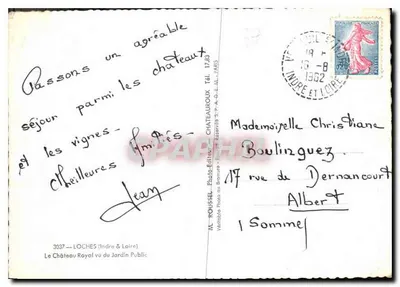 Passons un agréable
séjour parmi les chateaux
et les vignes -
Meilleures Amitiés -
Jean
2037 — LOCHES (Indre & Loire)
Le Château Royal vu du Jardin Public
M. ROUSSEL, Photo-Editeur, CHATEAUROUX Tél. 17.83
INDRE ET LOIRE
16 -8
1962
Mademoiselle Christiane
Boulinguez
17 rue de Dernancourt
Albert
(Somme)